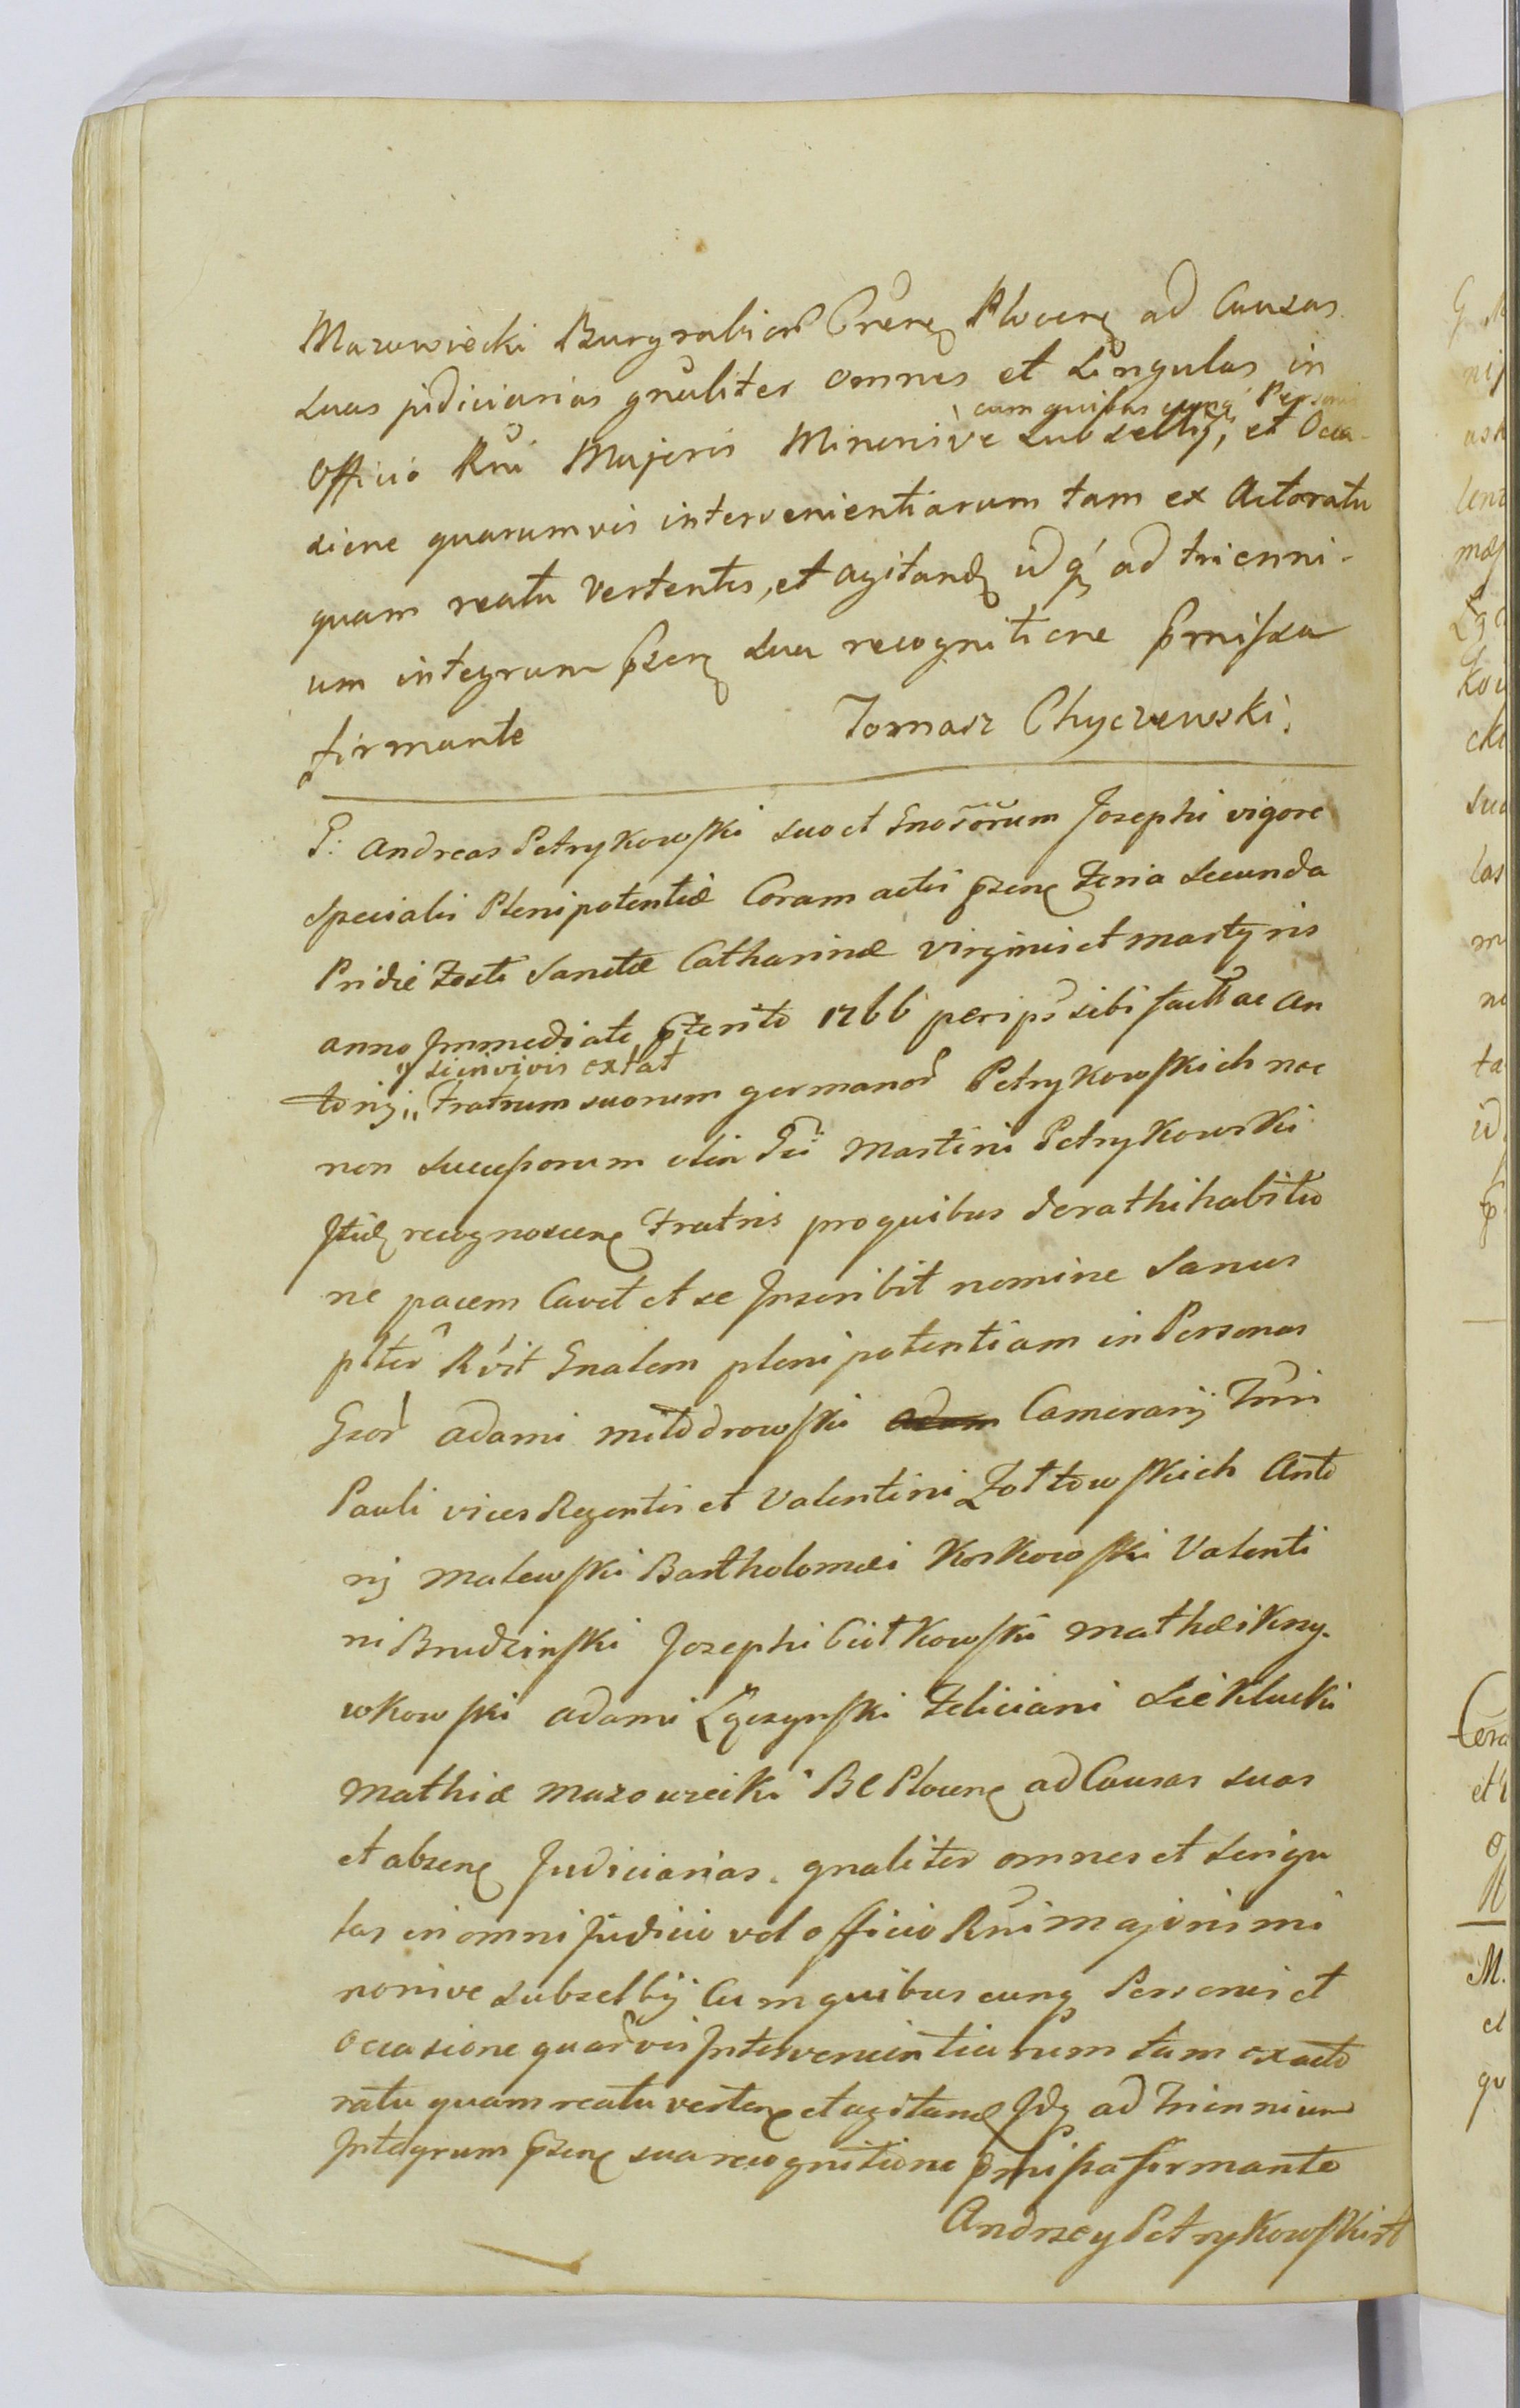 Mazowiecki Burgrabior Crenẽ Plocenẽ ad Causas
suas judiciarias gnãliter omnes et singulas in
cum quibus cunqꝫ Personis
Officio Rni Majoris Minorisve subsellij, et Occa-
sione quarumvis intervenientiarum tam ex Actoratu
quam reatu Vertentes, et agitandꝫ idqꝫ ad trienni-
um integrum pszenꝫ sua recognitione pmissa
firmante Tomasz Chyczewski.
G: Andreas Petrykowski suo et Gnosorum Josephi vigore
specialis Plenipotentiæ Coram actis pszenꝫ Feria Secunda
Pridie Festi Sanctæ Catharinæ virginis et martyris
anno Immediate pterito 1766 per ips sibi factæ ac An
si in vivis extat
tonij Fratrum suorum germanor Petrykowskich nec
non Successorum olim Gsi Martini Petrykowski
Itidꝫ recognoscenꝫ Fratris pro quibus de rathihabitio
ne pacem Cavet et se Inscribit nomine Sanus
plter Rvit Gnalem plenipotentiam in Personas
Gsor Adami Mitodrowski Camerarij Tnri
Pauli vices Regentis et Valentini Zołtowskich Anto
nij Malewski Bartholomæi Koskowski Valenti
ni Brudzinski Josephi Ciołkowski Mathæi Krzy-
wkowski Adami Łączynski Feliciani Siekłucki
Mathiæ Mazowieiki BC Plocenꝫ ad Causas suas
et absenꝫ Judiciarias gnaliter omnes et singu
las in omni Judicio vel officio Rni majoris mi
norisve Subsellij Cum quibus cunqꝫ Personis et
Occasione quarvis Intervenientiarum tam ex acto
ratu quam reatu vertenꝫ et agitandꝫ Idqꝫ ad Triennium
Integrum pszenꝫ sua recognitione pmissa firmante
Andrzey Petrykowski